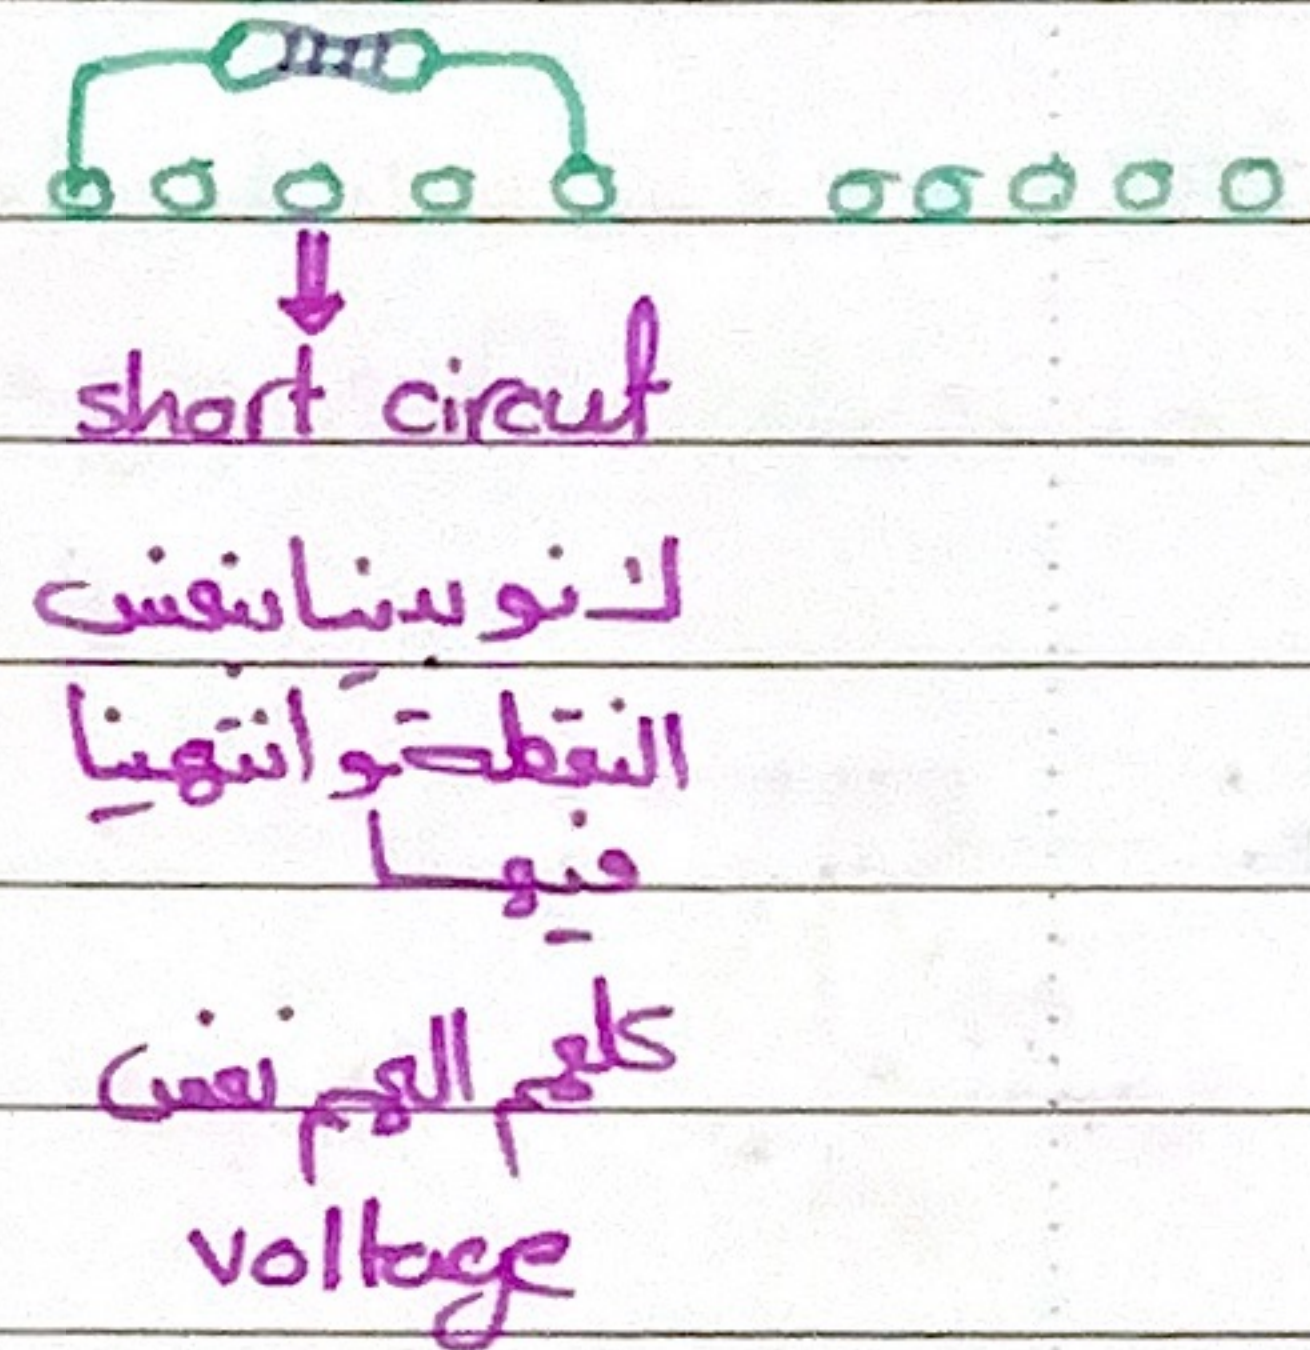 short circut
لانو بدينا بنفس
النقطة و انتهينا
فيها
كلهم الهم نفس
voltage